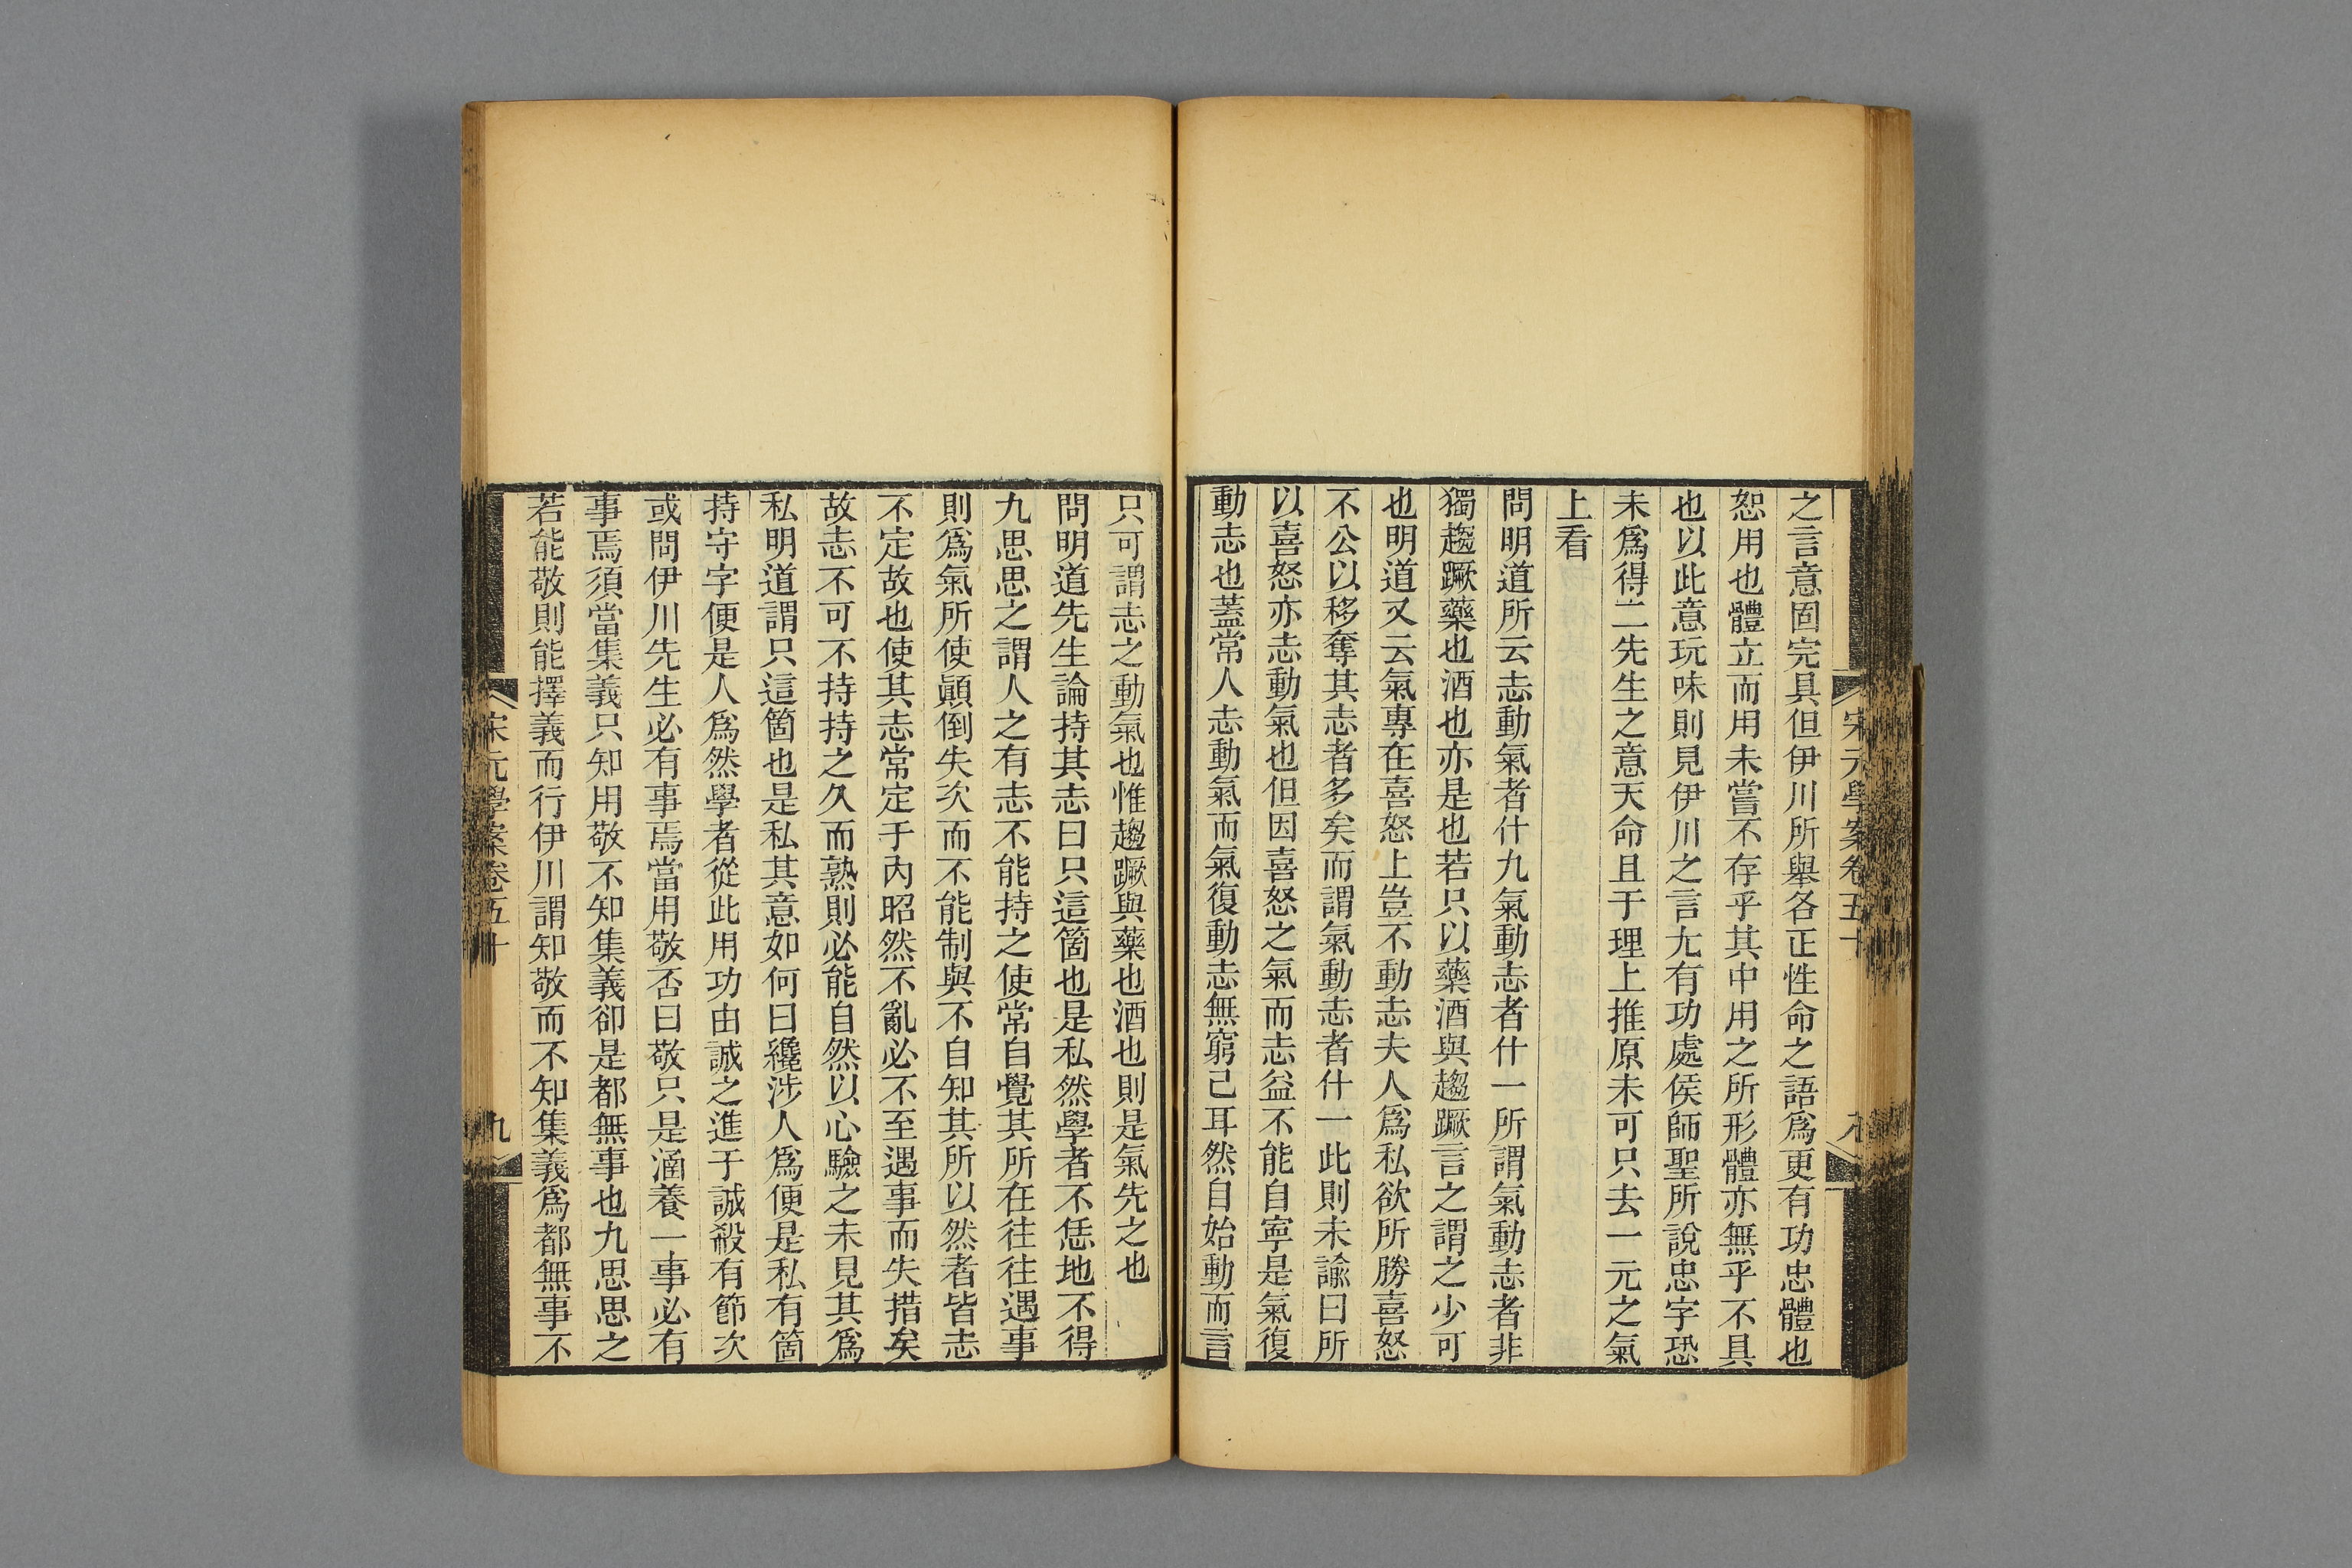 宋元學案卷五十
八
之言意固完具但伊川所舉各正性命之語爲更有功忠體也
恕用也體立而用未嘗不存乎其中用之所形體亦無乎不具
也以此意玩味則見伊川之言尤有功處侯師聖所說忠字恐
未爲得二先生之意天命且于理上推原未可只去一元之氣
上看
問明道所云志動氣者什九氣動志者什一所謂氣動志者非
獨趨蹶藥也酒也亦是也若只以藥酒與趨蹶言之謂之少可
也明道又云氣專在喜怒上豈不動志夫人爲私欲所勝喜怒
不公以移奪其志者多矣而謂氣動志者什一此則未諭曰所
以喜怒亦志動氣也但因喜怒之氣而志益不能自寧是氣復
動志也蓋常人志動氣而氣復動志無窮已耳然自始動而言
只可謂志之動氣也惟趨蹶與藥也酒也則是氣先之也
問明道先生論持其志曰只這箇也是私然學者不恁地不得
九思思之謂人之有志不能持之使常自覺其所在往往遇事
則爲氣所使顚倒失次而不能制與不自知其所以然者皆志
不定故也使其志常定于內昭然不亂必不至遇事而失措矣
故志不可不持持之久而熟則必能自然以心驗之未見其爲
私明道謂只這箇也是私其意如何曰纔涉人爲便是私有箇
持守字便是人爲然學者從此用功由誠之進于誠殺有節次
或問伊川先生必有事焉當用敬否曰敬只是涵養一事必有
事焉須當集義只知用敬不知集義卻是都無事也九思思之
若能敬則能擇義而行伊川謂知敬而不知集義爲都無事不
宋元學案卷五十
九